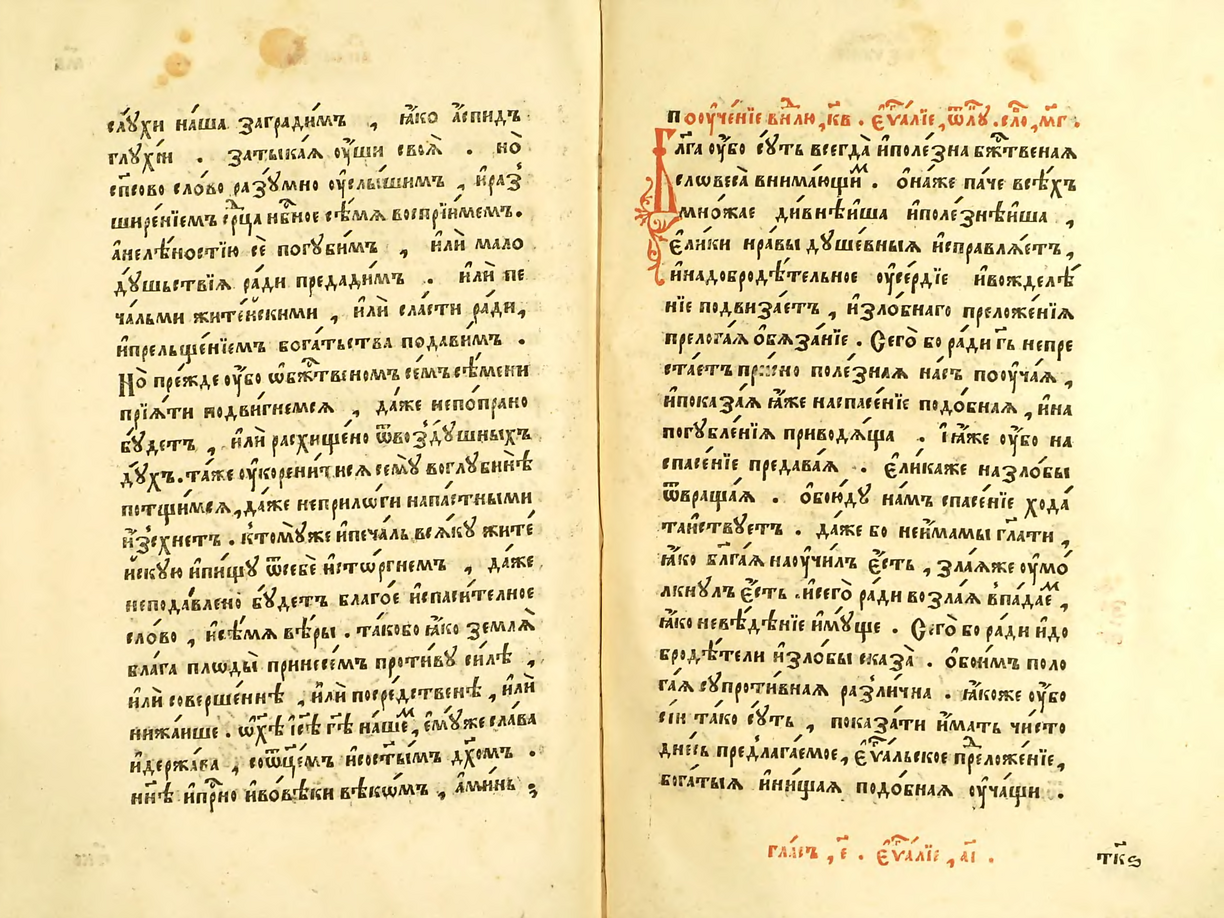 слꙋ́хи на́ша загради́мъ , ꙗ҆́ко а҆́спидъ
глꙋхі́и . затыка́ѧ ᲂу҆́ши своѧ̀ . но̀
сп҃сово сло́во разꙋ́мно ᲂу҆слы́шимъ , и҆раз̾
шире́нїемъ ср҃ца нб҃ное сѣ́мѧ воспрїи́мемъ.
а҆нелѣ́ностїю сѐ погꙋби́мъ , и҆лѝ мало
дꙋ́шьствїѧ ра́ди предади́мъ . и҆лѝ пе
ча́льми жите́йскими , и҆лѝ сла́сти ра́ди,
и҆прельще́нїемъ бога́тьства подави́мъ .
Но̀ пре́жде ᲂу҆́бо ѡ҆бж҃твеномъ се́мъ сѣ́мени
прїѧ́ти подви́гнемсѧ , да́же непо́прано
бꙋ́детъ , и҆лѝ расхище́но ѿвоздꙋ́шныхъ
дꙋ́хъ. та́же ᲂу҆корени́тисѧ семꙋ̀ воглꙋбинѣ̀
потщи́мсѧ, да́же неприло́ги напа́стными
и҆́з̾схнетъ . ктомꙋ́же и҆печа́ль всѧ́кꙋ жите́
йскую и҆пи́щꙋ ѿсебѐ и҆сто́ргнемъ , да́же
неподавлено̀ бꙋ́детъ благо́е и҆спаси́телное
сло́во , и҆сѣ́мѧ вѣ́ры . та́кобо ꙗ҆́ко землѧ̀
бла́га плоды̀ принесе́мъ проти́вꙋ си́лѣ ,
и҆лѝ соверше́ннѣ , и҆лѝ посре́дственѣ , и҆лѝ
нижа́ише . ѡ҆х҃ѣ і҆с҃ѣ гд҃ѣ на́шеⷨ, є҆мꙋ́же сла́ва
и҆держа́ва , соѿц҃е́мъ и҆сост҃ы́мъ дх҃омъ .
нн҃ѣ и҆при́сно и҆вовѣ́ки вѣко́мъ , а҆ми́нь ;
поᲂу҆че́нїе в҃ не́лю, к҃в . є҆ѵⷢ҇а́лїе, ѿлꙋ . сло̀, м҃г .
Бл҃га ᲂу҆́бо сꙋ́ть всегда̀ и҆поле́зна бж҃твеная
словеса̀ внима́ющиⷨ . ѻ҆на́же па́че всѣ́хъ
мно́жае дивнѣ́йша и҆поле́знѣйша ,
є҆ли́ки нра́вы дꙋше́вныѧ и҆справлѧ́етъ,
и҆надобродѣ́тельное ᲂу҆се́рдїе и҆вожделѣ́
нїе подвиза́етъ , и҆зло́бнаго преложе́нїѧ
прелога́ѧ ѡ҆бѧза́нїе . Сего́ бо ра́ди гд҃ь непре
стае́тъ при́сно поле́знаѧ на́съ поᲂу҆ча́ѧ ,
и҆показа́ѧ ꙗ҆́же наспасе́нїе подо́бнаѧ , и҆на
погꙋбле́нїѧ приводѧ́ща . І҆ ꙗ҆́же ᲂу҆́бо на
спасе́нїе предава́ѧ . є҆ли́каже назло́бы
ѿвраща́ѧ . ѻ҆бою́дꙋ на́мъ спасе́нїе хода́
та́йствꙋетъ . да́же бо неи҆́мамы гл҃ати ,
ꙗ҆́ко бл҃га́ѧ наᲂу҆чи́лъ є҆́сть , зла́ѧже ᲂу҆мо́
лкнꙋлъ є҆́сть . и҆сего̀ ра́ди возла́ѧ впада́еⷨ ,
ꙗ҆́ко невѣ́дѣнїе и҆мꙋще . Сего́ бо ра́ди и҆до
бродѣ́тели и҆зло́бы сказа̀ . ѻ҆бои́мъ поло
га́ѧ сꙋпроти́внаѧ разли́чна . ꙗ҆́коже ᲂу҆́бо
сі́и та́ко сꙋ́ть , показа́ти и҆́мать чи́сто
дне́сь предлага́емое, є҆ѵⷢ҇а́льское преложе́нїе,
бога́тыѧ и҆ни́щаѧ подо́бнаѧ ᲂу҆ча́щи .
гла́съ , є҃ . є҆ѵⷢ҇а́лїе , а҃і .
тк҃ѕ